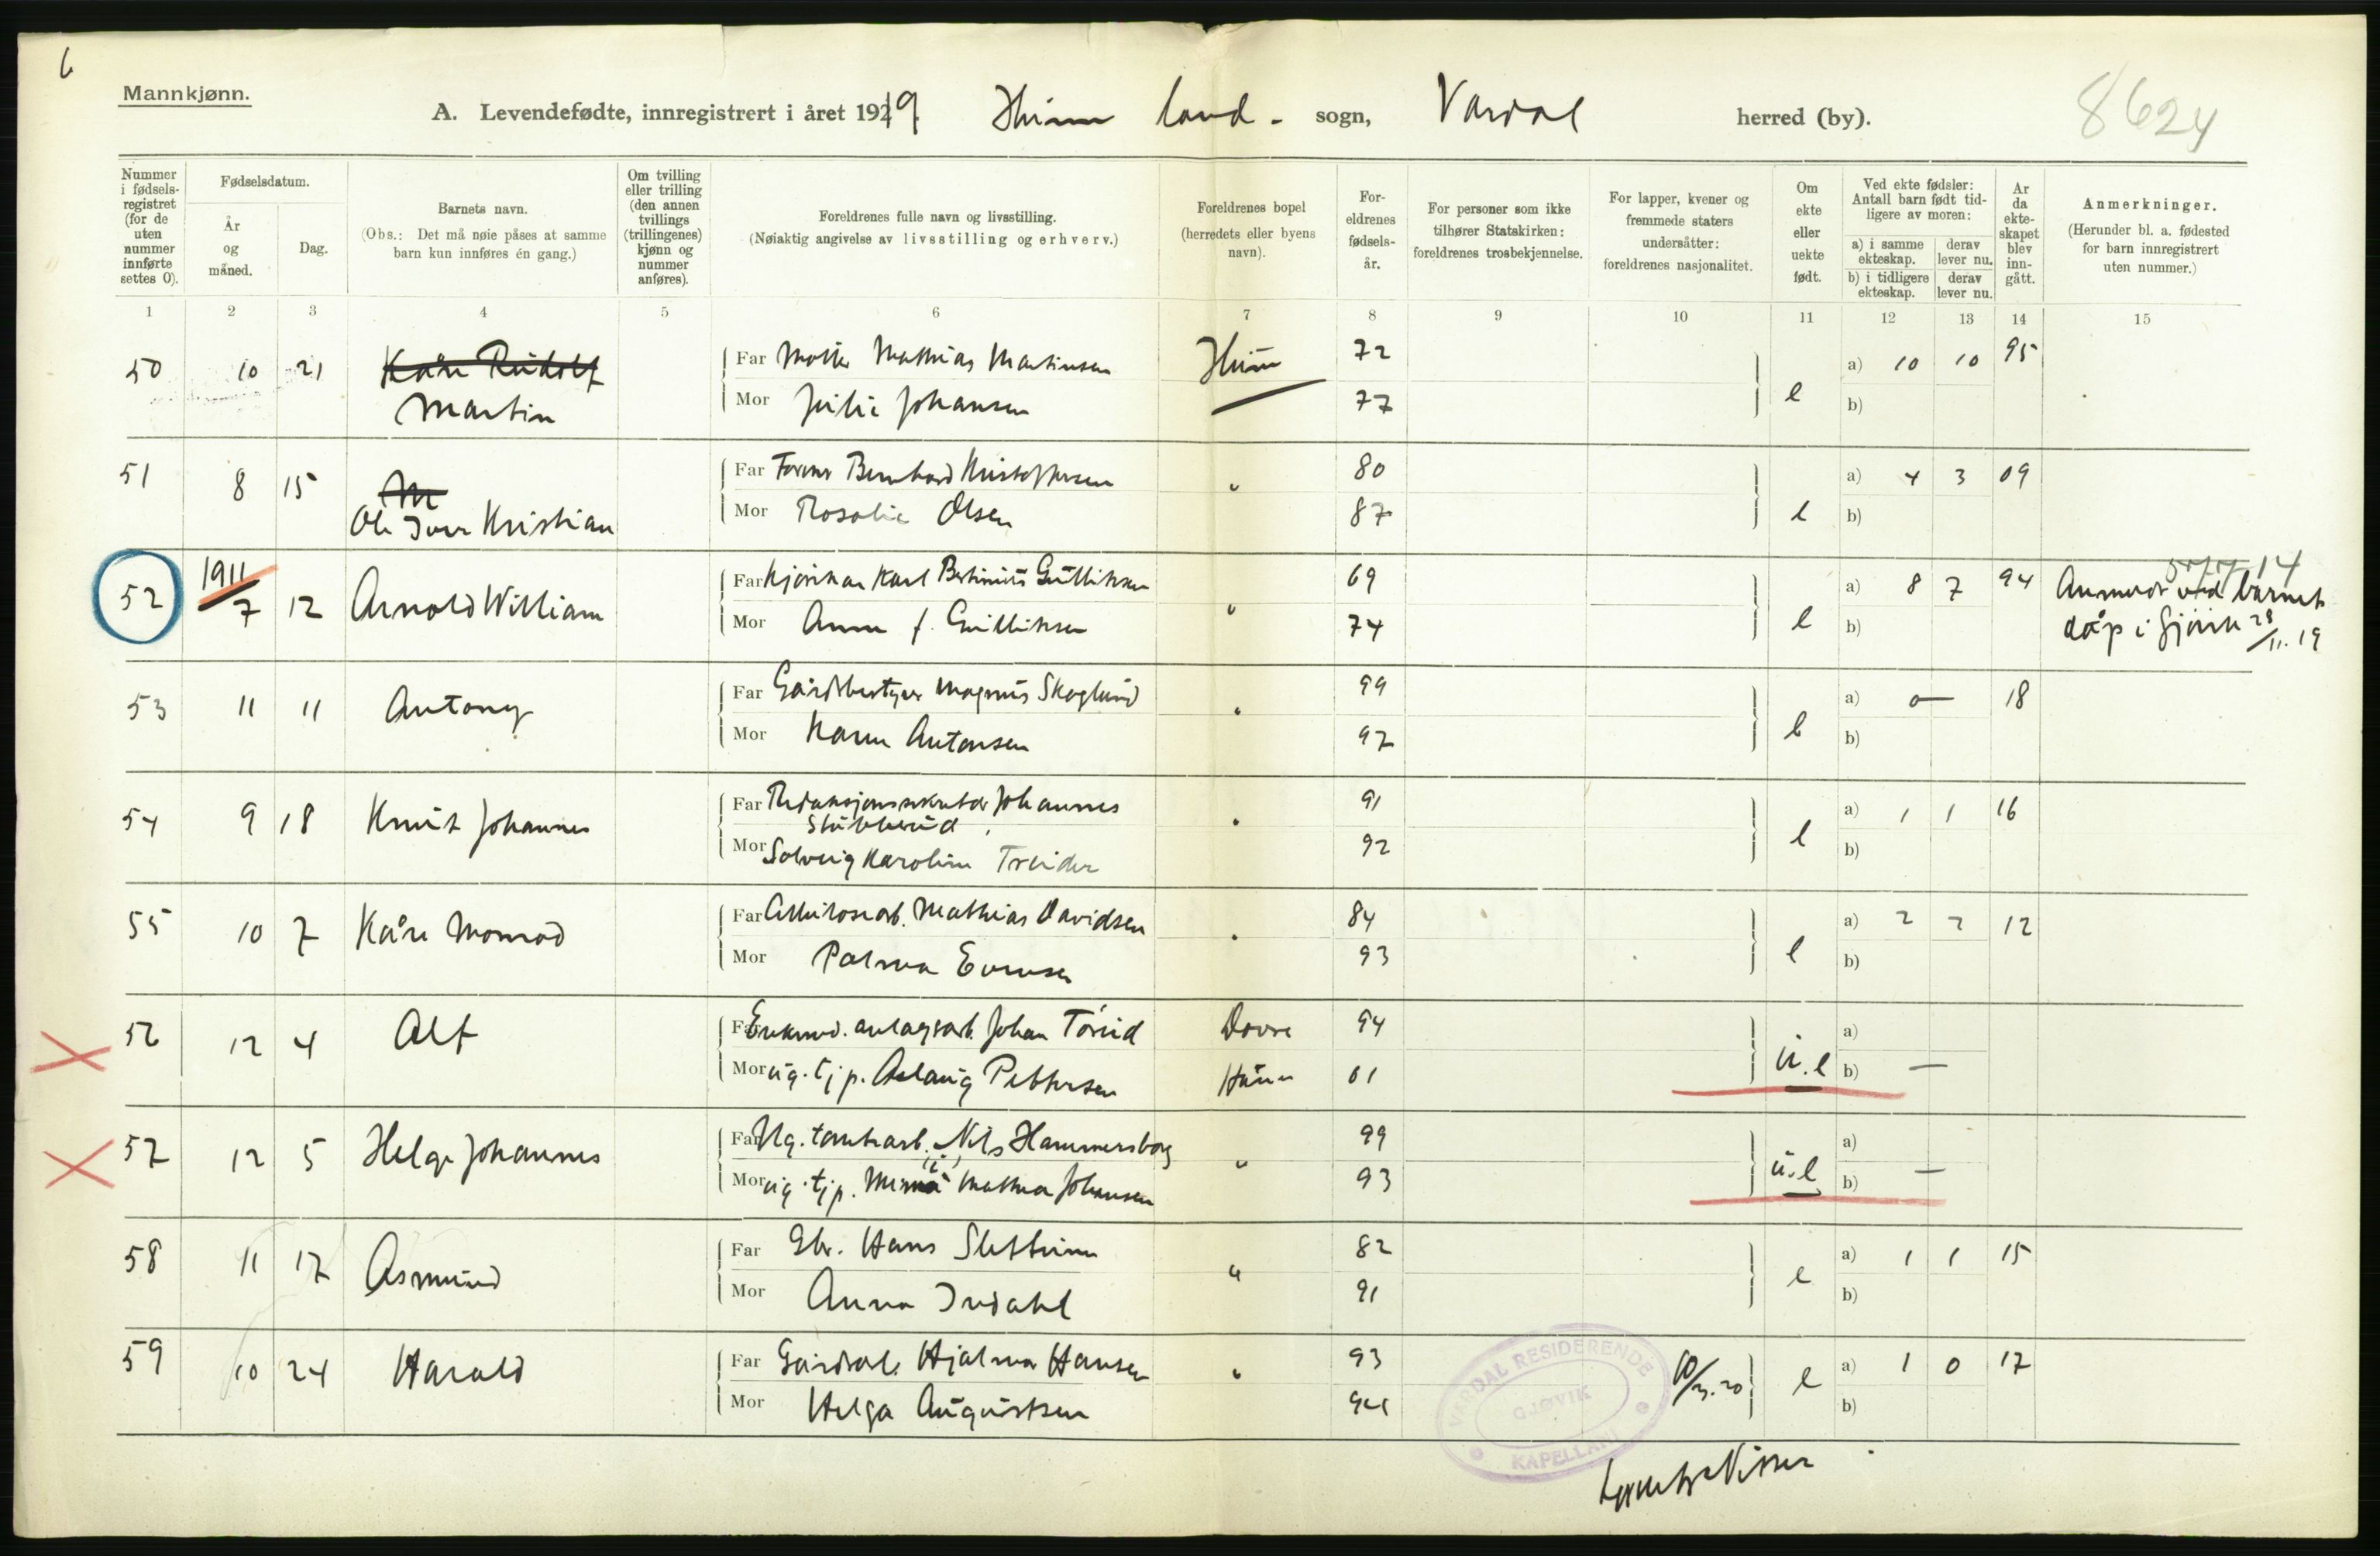 6
Mannkjønn.
A. Levendefødte, innregistrert i året 1919. Hunn land - sogn, Vardal herred (by). 8624
Nummer i fødsels-registret (for de uten nummer innførte settes 0).
Fødselsdatum.
År og måned.
Dag.
Barnets navn.
(Obs.: Det må nøie påses at samme barn kun innføres én gang.)
Om tvilling eller trilling (den annen tvillings (trillingenes) kjønn og nummer anføres).
Foreldrenes fulle navn og livsstilling.
(Nøiaktig angivelse av livsstilling og erhverv.)
Foreldrenes bopel (herredets eller byens navn).
For-eldrenes fødsels-år.
For personer som ikke tilhører Statskirken: foreldrenes trosbekjennelse.
For lapper, kvener og fremmede staters undersåtter: foreldrenes nasjonalitet.
Om ekte eller uekte født.
Ved ekte fødsler: Antall barn født tid-ligere av moren:
a) i samme ekteskap.
derav lever nu.
b) i tidligere ekteskap.
derav lever nu.
År da ekte-skapet blev inn-gått.
Anmerkninger.
(Herunder bl. a. fødested for barn innregistrert uten nummer.)
1 2 3 4 5 6 7 8 9 10 11 12 13 14 15
50 10 21 Kåre Rudolf Far Mathias Martinsen Hunn 72 a) 10 10 95
Martin Mor Julie Johansen 77 e b)
51 8 15 M Far Bernhard Kristoffersen " 80 a) 4 3 09
Ole Iver Kristian Mor Rosalie Olsen 87 e b)
52 1911 7 12 Arnold William Far Karl Bertinius Gulliksen " 69 a) 8 7 94 Anmeldt ved barnets
Mor Anna f. Gulliksen 74 e b) dåp i Gjøvik 28/11.19
53 11 11 Antony Far Gårdsbestyrer Magnus Skoglund " 99 a) 0 — 18
Mor Karen Antonsen 97 e b)
54 9 18 Knut Johannes Far Redaksjonssekretær Johannes " 91 a) 1 1 16
Stubberud
Mor Solveig Karoline Treider 92 e b)
55 10 7 Kåre Monrad Far Mathias Davidsen " 84 a) 2 2 12
Mor Palma Evensen 93 e b)
56 12 4 Alf Far Enkem. anlagsarb. Johan Dovre 94 a)
Mor ug. tjp. Aslaug Pettersen Hunn 01 u.e b) —
57 12 5 Helge Johannes Far Ug. Nils Hammersborg " 99 a)
Mor ug. tjp. Mathea Johansen 93 u.e b) —
58 11 17 Asmund Far Gbr. Hans Slettum " 82 a) 1 1 15
Mor Anna Indahl 91 e b)
59 10 24 Harald Far Gårdsarb. Hjalmar Hansen " 93 a) 1 0 17
Mor Helga Augustsen e b)
VARDAL RESIDERENDE KAPELLANI
GJØVIK